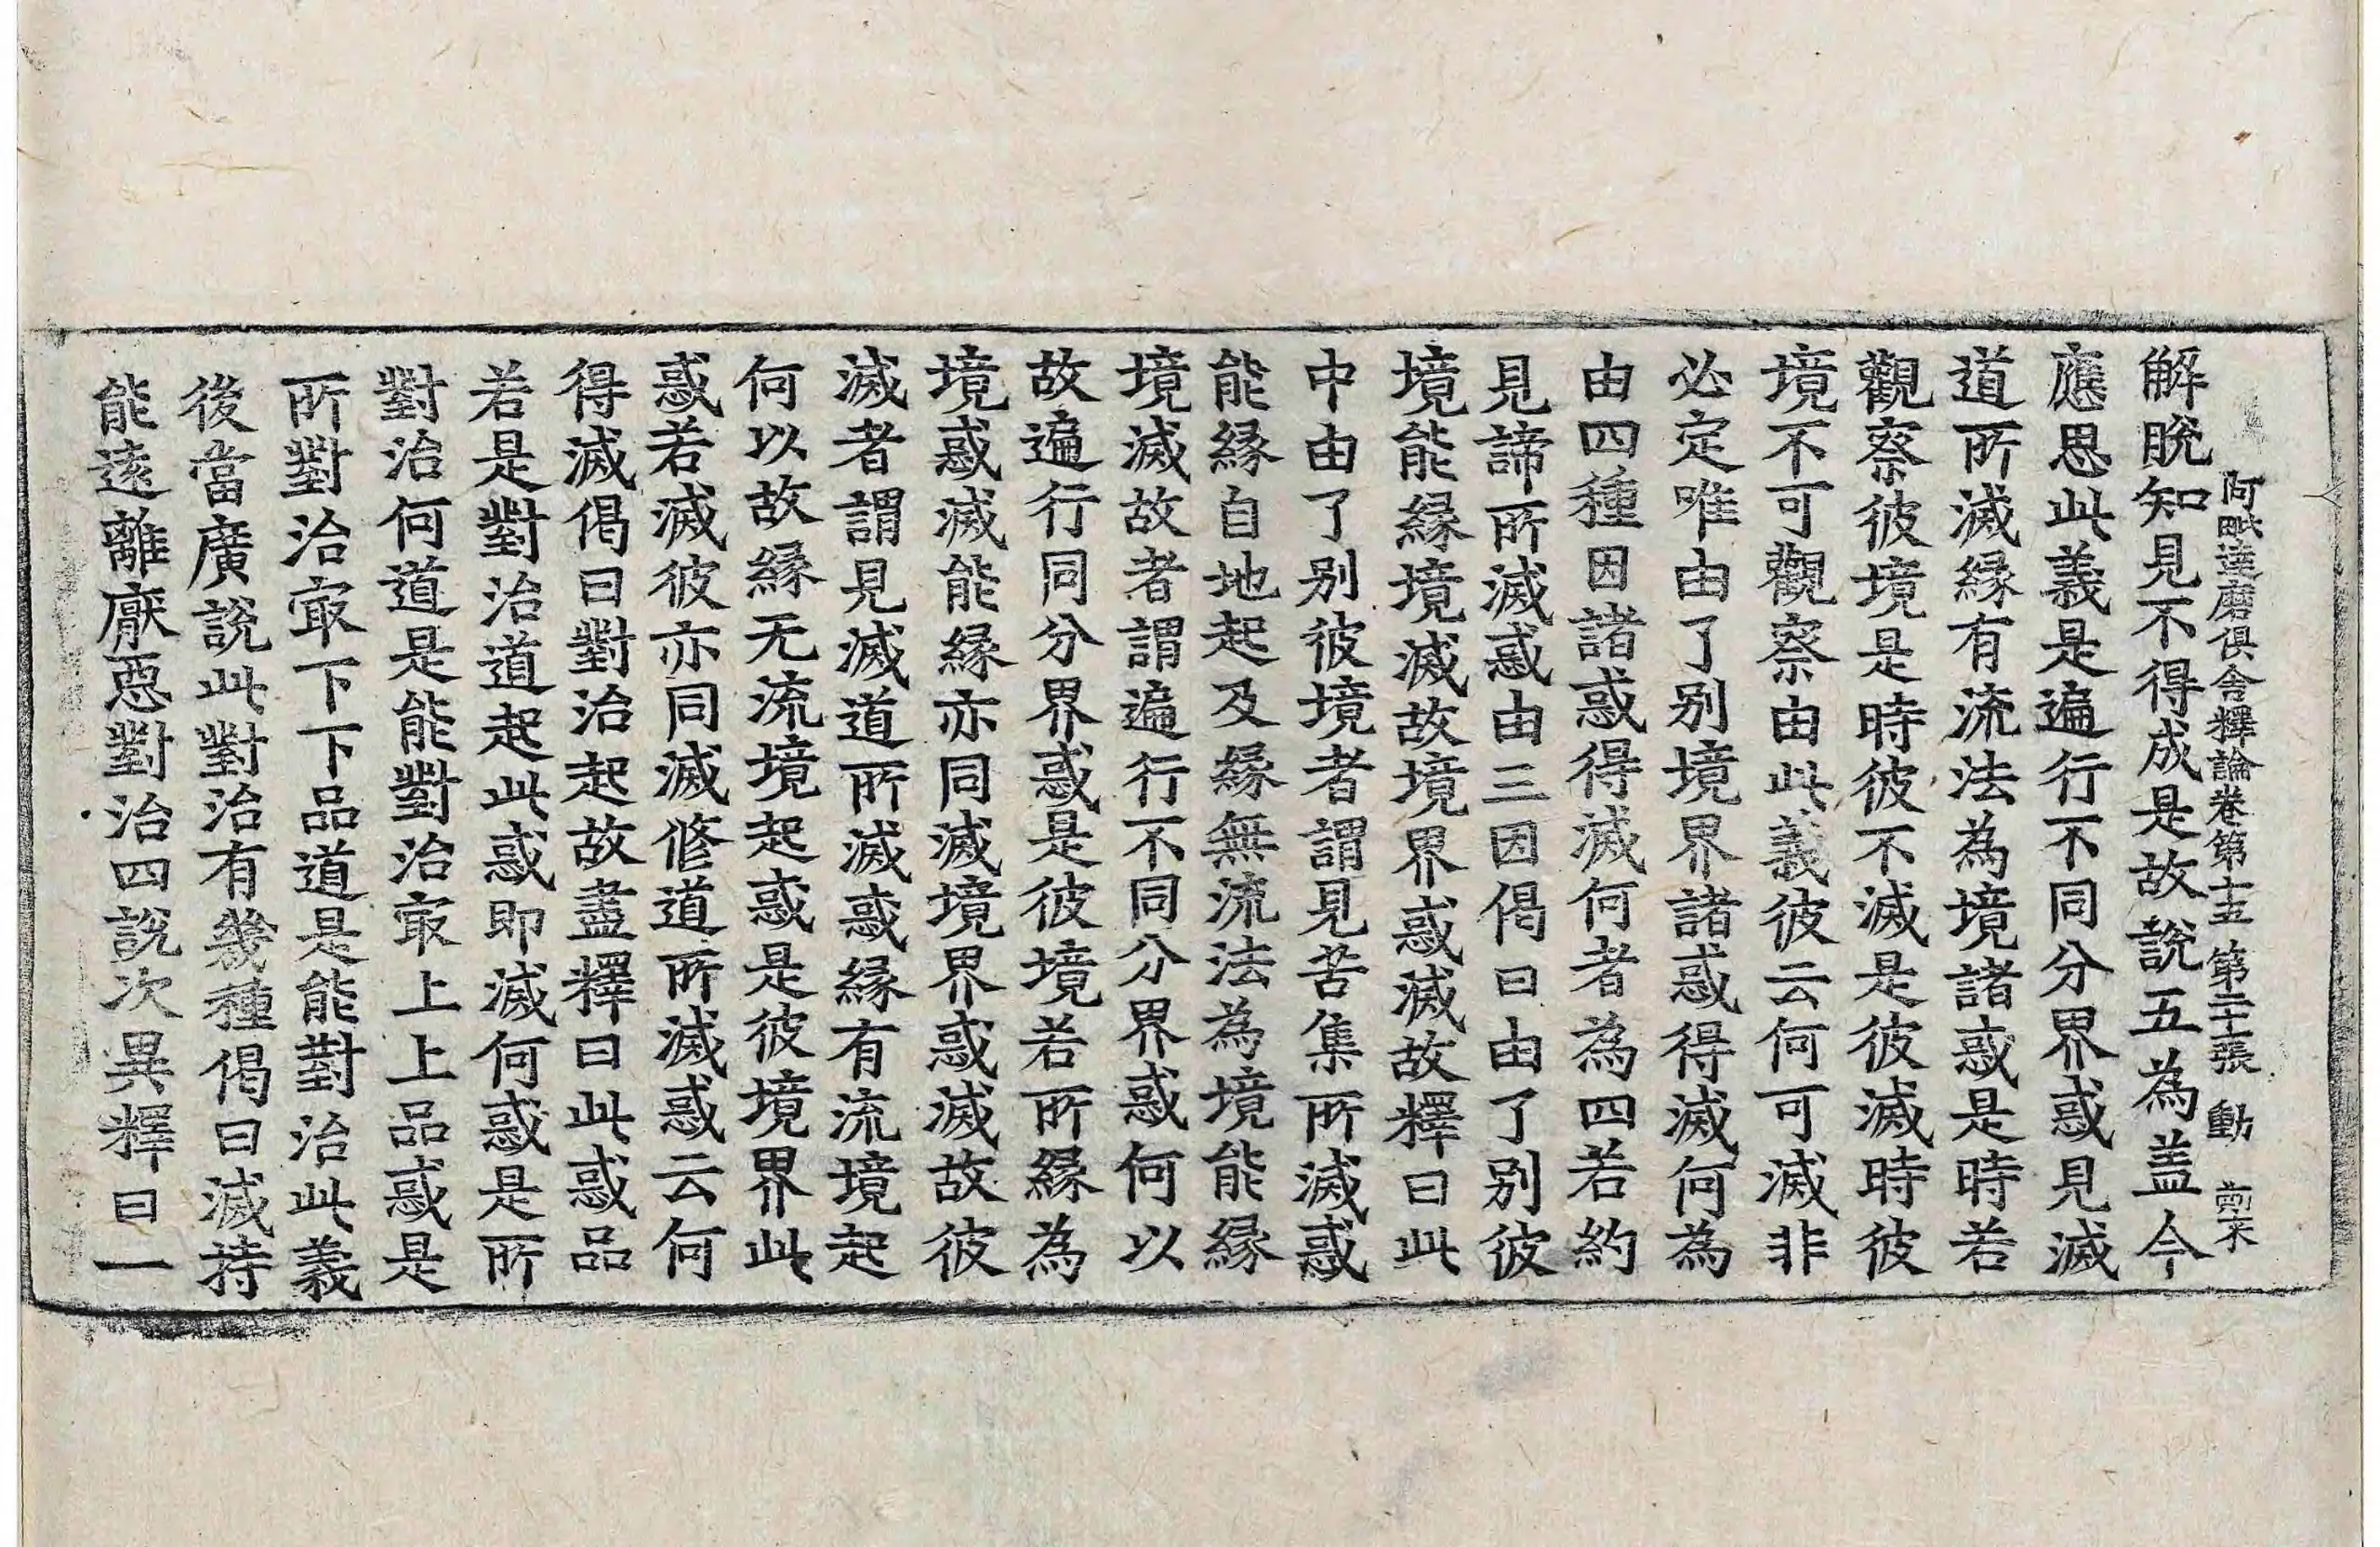 阿毗達磨俱舍釋論卷第十五 第二十張 動
解脫知見不得成是故說五為盖今
應思此義是遍行不同分界惑見滅
道所滅緣有流法為境諸惑是時若
觀察彼境是時彼不滅是彼滅時彼
境不可觀察由此義彼云何可滅非
必定唯由了别境界諸惑得滅何為
由四種因諸惑得滅何者為四若約
見諦所滅惑由三因偈曰由了别彼
境能緣境滅故境界惑滅故釋曰此
中由了别彼境者謂見苦集所滅惑
能緣自地起及緣無流法為境能緣
境滅故者謂遍行不同分界惑何以
故遍行同分界惑是彼境若所緣為
境惑滅能緣亦同滅境界惑滅故彼
滅者謂見滅道所滅惑緣有流境起
何以故緣无流境起惑是彼境界此
惑若滅彼亦同滅修道所滅惑云何
得滅偈曰對治起故盡釋曰此惑品
若是對治道起此惑即滅何惑是所
對治何道是能對治㝡上上品惑是
所對治㝡下下品道是能對治此義
後當廣說此對治有幾種偈曰滅持
能遠離厭惡對治四說次異釋曰一